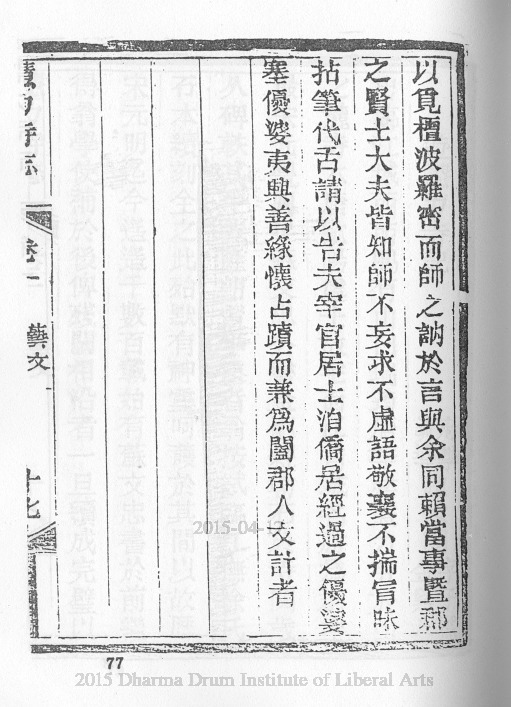 以覓檀波羅密而師之訥於言與余同賴當事暨鄉
之賢士大夫皆知師不妄求不虛語敬襄不揣冒昧
拈筆代舌請以告夫宰官居士洎僑居經過之優婆
塞優婆夷興善緣懷古蹟而兼爲闔郡人文計者
寺志
卷一
藝文
十七
2015-04-17
77
2015 Dharma Drum Institute of Liberal Arts